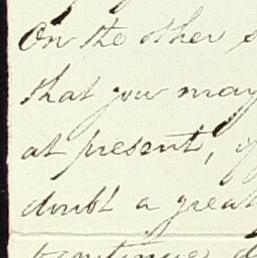 On the other s
that you may
at present, if
doubt a great